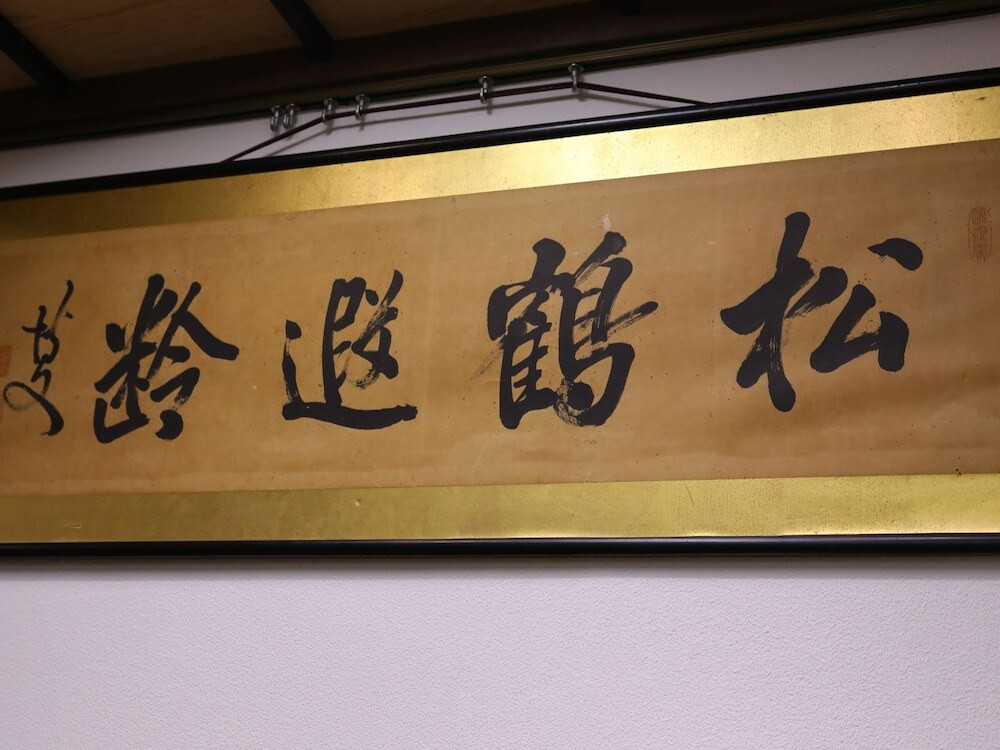 松鶴遐齢